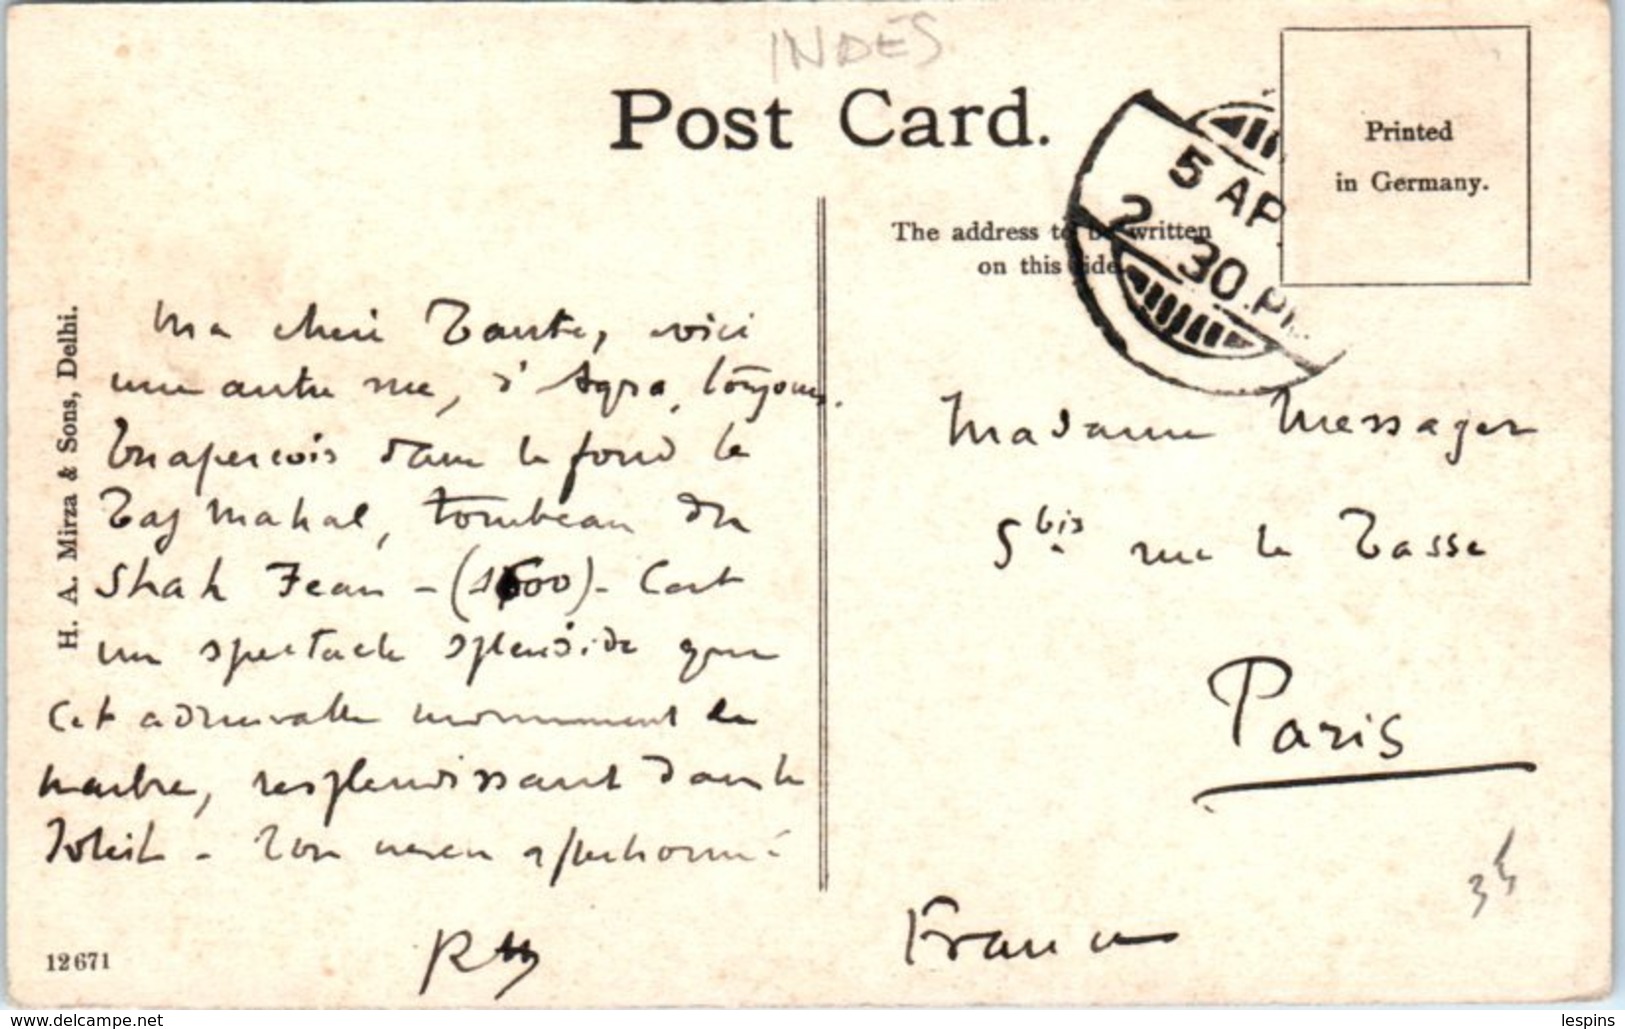 INDES
Post Card.
Printed
in Germany.
5 AP
2 30 PM
The address to be written
on this side.
H. A. Mirza & Sons, Delhi.
Ma chère Tante, voici
une autre rue, d'Agra, toujours.
On aperçois dans le fond le
Taj Mahal, tombeau du
Shah Jean - (1600) - C'est
un spectacle splendide que
cet admirable monument en
marbre, resplendissant dans le
Soleil - Ton neveu affectionné
Madame Messager
5 bis rue le Tasse
Paris
France
12671
www.delcampe.net
lespins